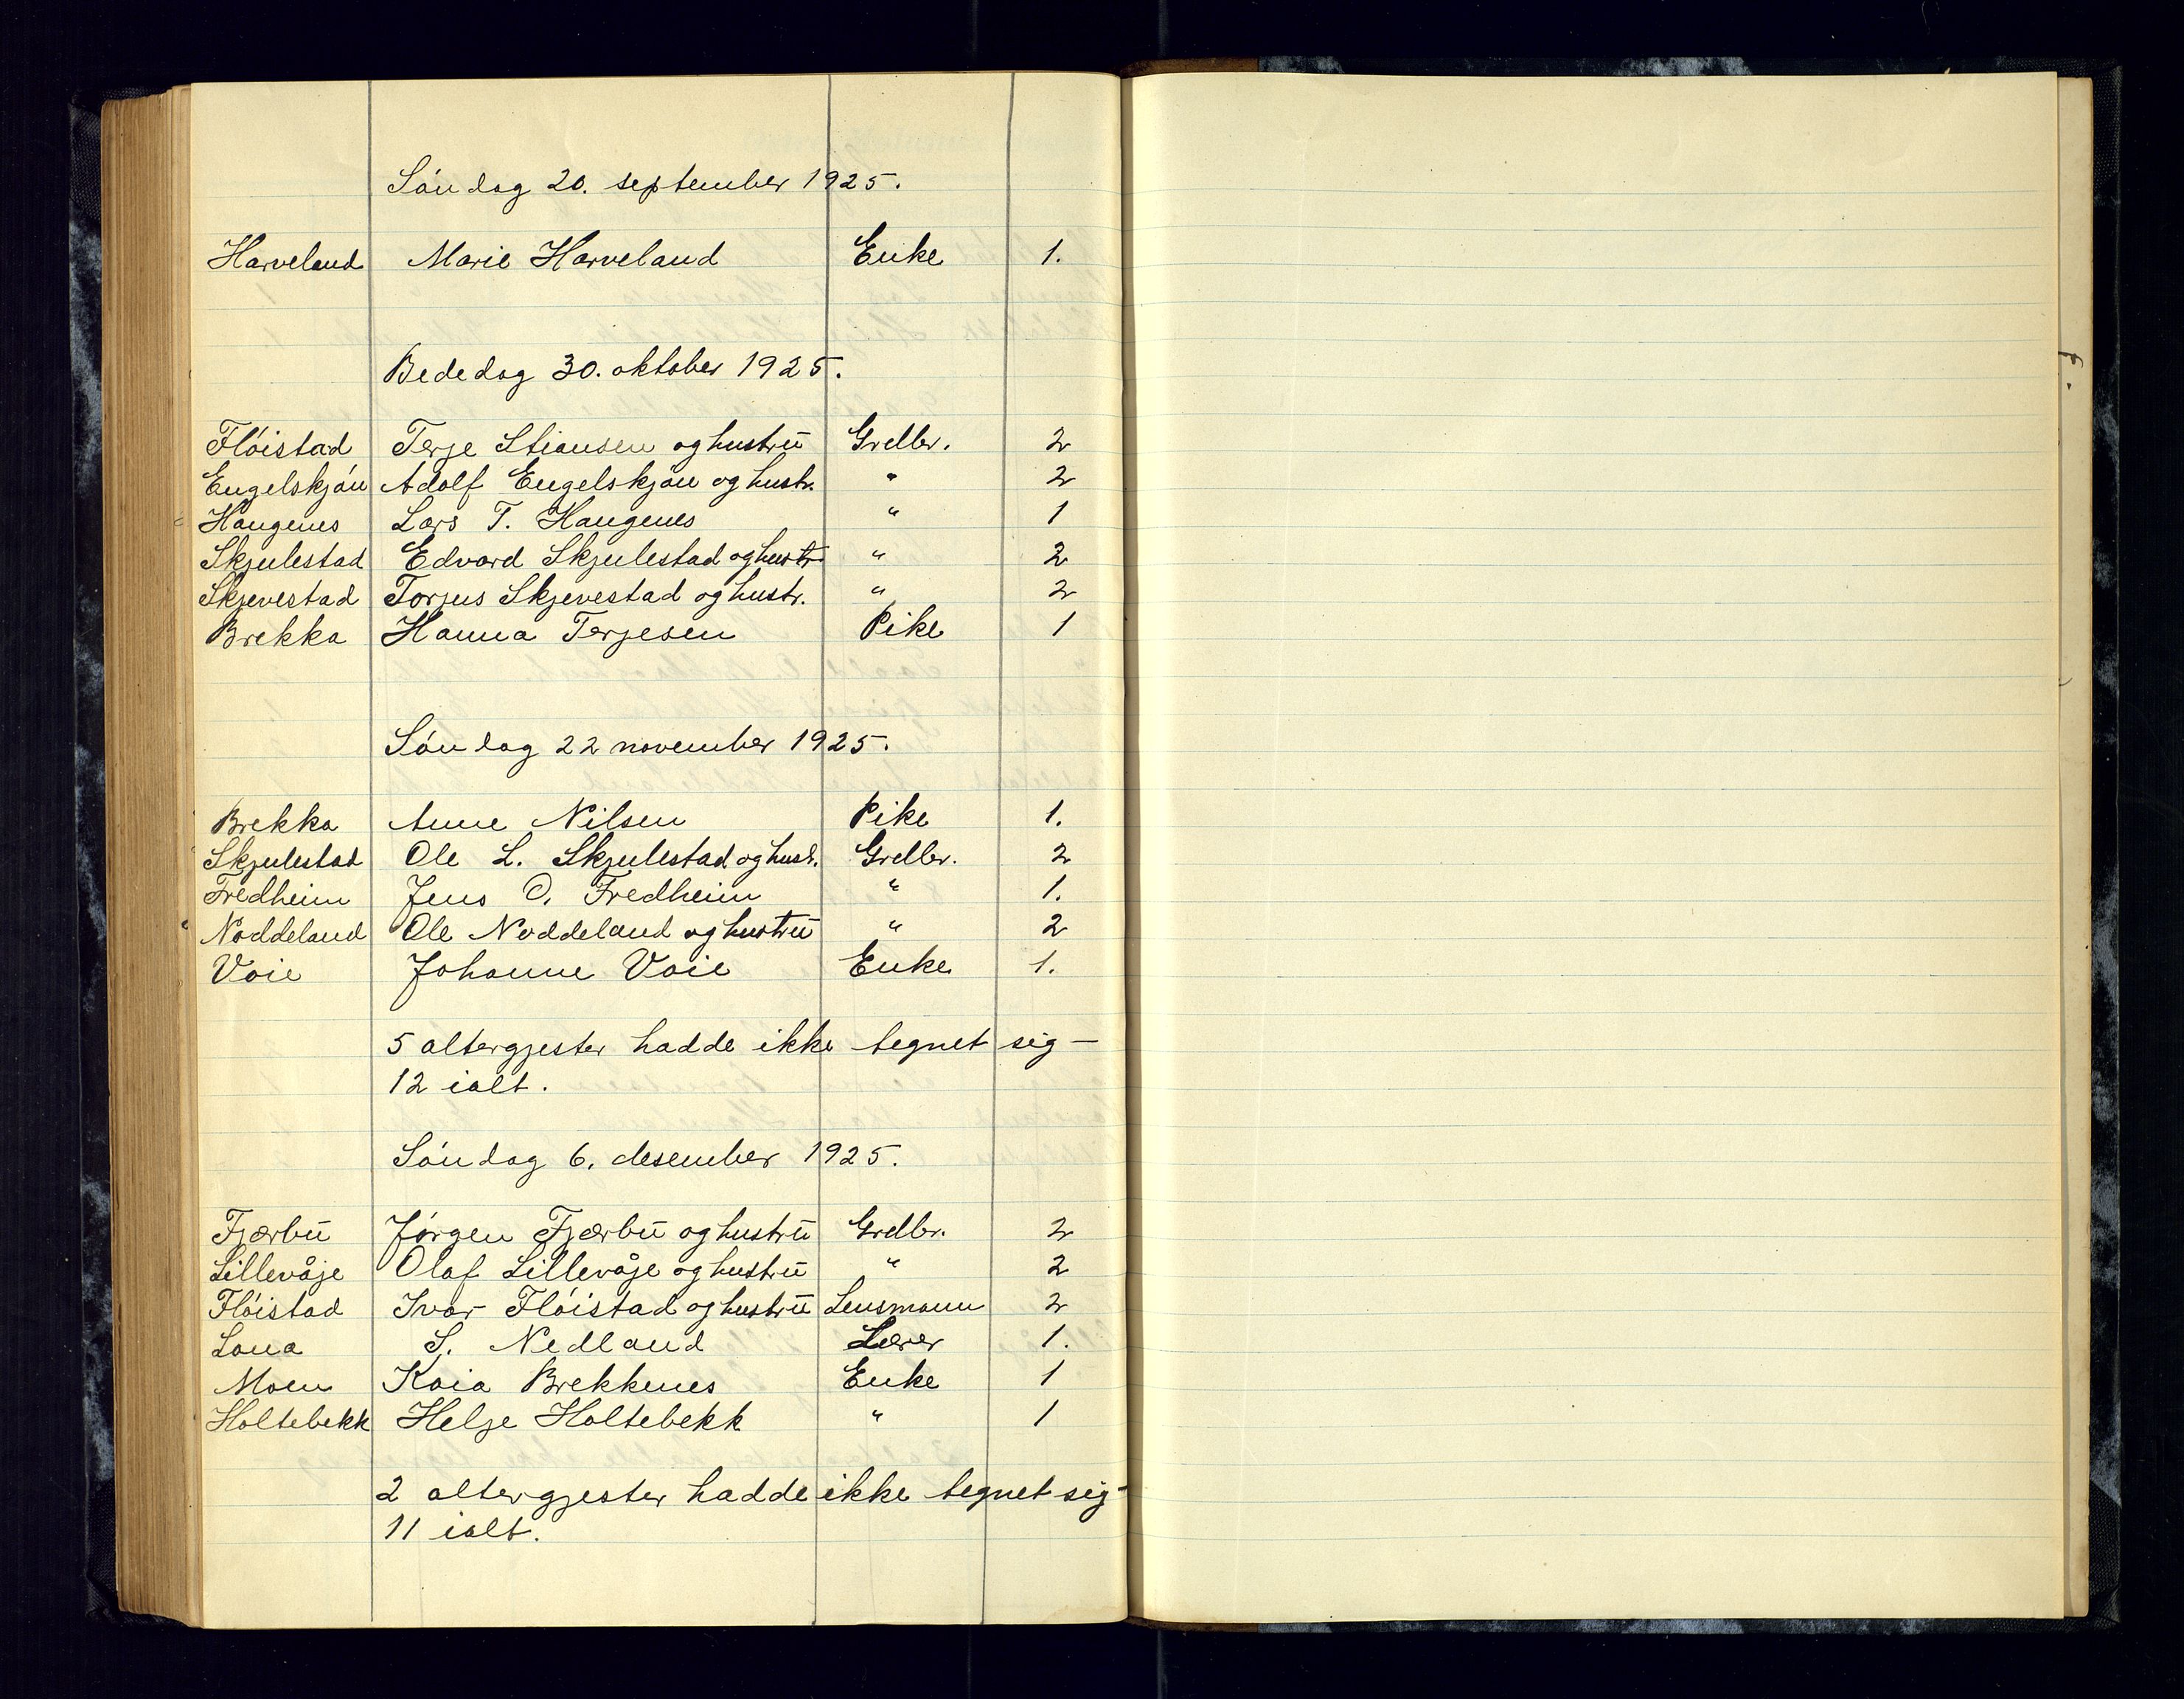 Søndag 20. september 1925.
Harveland Marie Harveland Enke 1.
Bededag 30. oktober 1925.
Fløistad Terje Stiansen og hustru Grdbr. 2
Engelskjøn Adolf Engelskjøn og hustr. " 2
Haugenes Lars T. Haugenes " 1
Skjulestad Edvard Skjulestad og hustr. " 2
Skjevestad Torjus Skjevestad og hustr. " 2
Brekka Hanna Terjesen Pike 1
Søndag 22 november 1925.
Brekka Anne Nilsen Pike 1.
Skjulestad Ole L. Skjulestad og hust. Grdbr. 2
Fredheim Jens O. Fredheim " 1.
Noddeland Ole Noddeland og hustru " 2
Voie Johanne Voie Enke 1.
5 altergjester hadde ikke tegnet sig —
12 ialt.
Søndag 6. desember 1925.
Fjærbu Jørgen Fjærbu og hustru Grdbr. 2
Lillevåje Olaf Lillevåje og hustru " 2
Fløistad Ivar Fløistad og hustru Lensmann 2
Lona S. Nedland Lærer 1.
Moen Kaia Brekkenes Enke 1
Holtebekk Helje Holtebekk " 1
2 altergjester hadde ikke tegnet sig -
11 ialt.